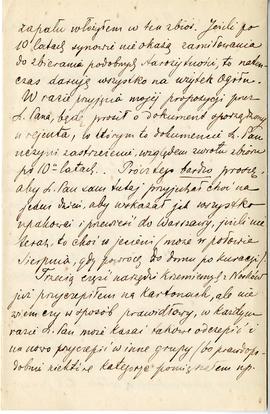 zapału włożyłem w ten zbiór. Jeśli po
10 latach synowie nie okażą zamiłowania
do zbierania podobnych starożytności, to naten-
czas daruję wszystko na użytek Ogółu.
W razie przyjęcia mojej propozycji przez
Sz. Pana, będę prosił o dokument sporządzony
u rejenta, w którym to dokumencie Sz. Pan
uczyni zastrzeżenie względem zwrotu zbioru
po 10-latach. Przeto bardzo proszę,
aby Sz. Pan sam tutaj przyjechał choć na
jeden dzień, aby wskazał jak wszystko
upakować i przewieźć do Warszawy, jeśli nie
teraz, to choć w jesieni (może w połowie
Sierpnia, gdy powrócę do domu po kuracji).
Trzecią część narzędzi krzemiennych z
już przyczepiłem na kartonach, ale nie
wiem czy w sposób prawidłowy, w każdym
razie Sz. Pan może kazać takowe odczepić i
na nowo przyczepić w inne grupy (bo prawdopo-
dobnie niektóre kategorje pomieszałem np.